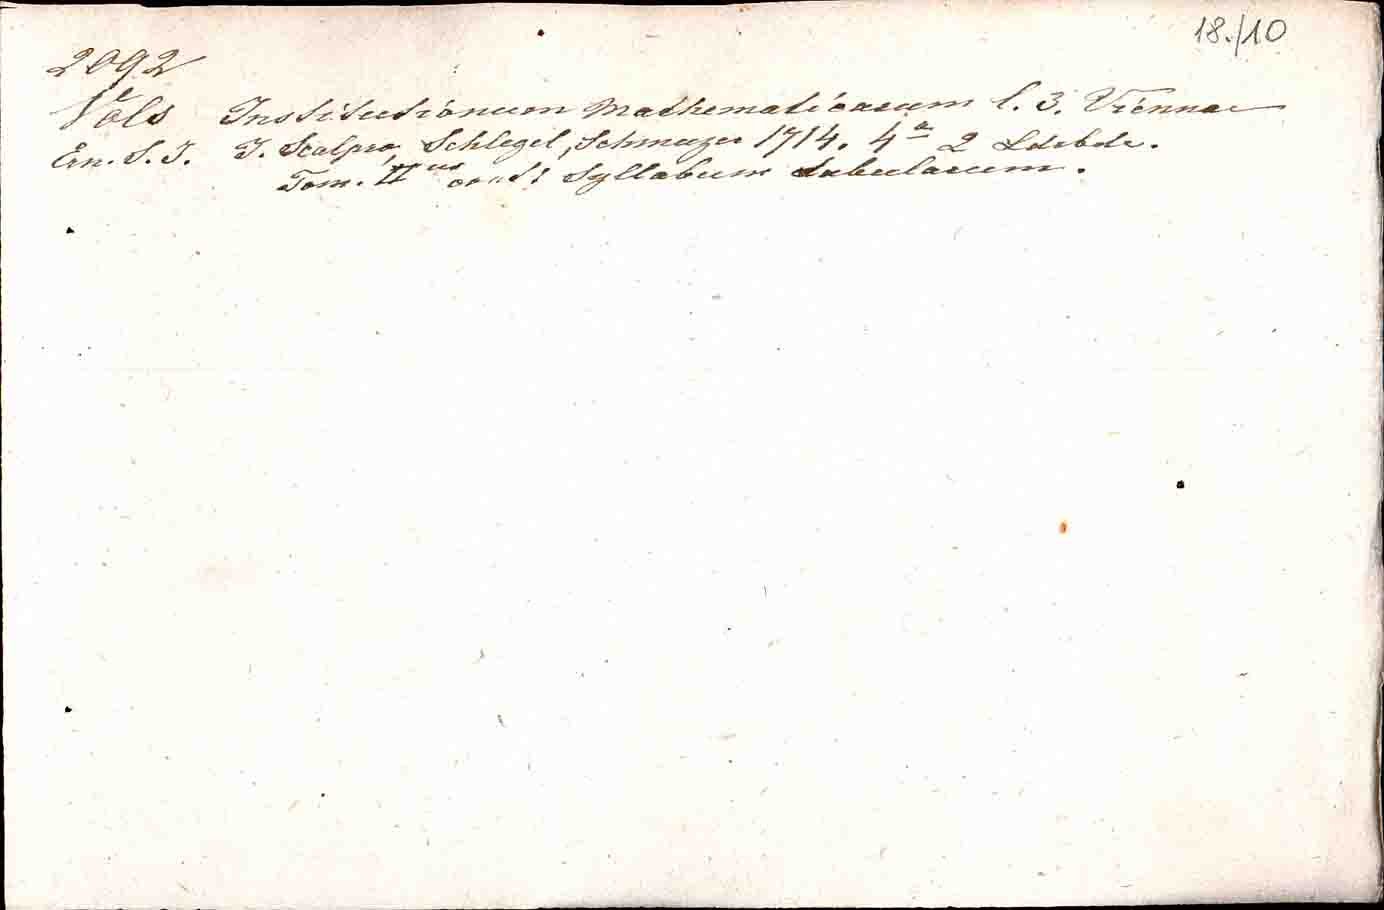 18./10
2092
Vols Institutionum Mathematicarum l. 3. Viennae
Ern. S. J. J. Scalpro, Schlegel, Schmuzer 1714. 4ᵃ 2 Ldrbde.
Tom. IIᵘˢ Syllabum tabularum.